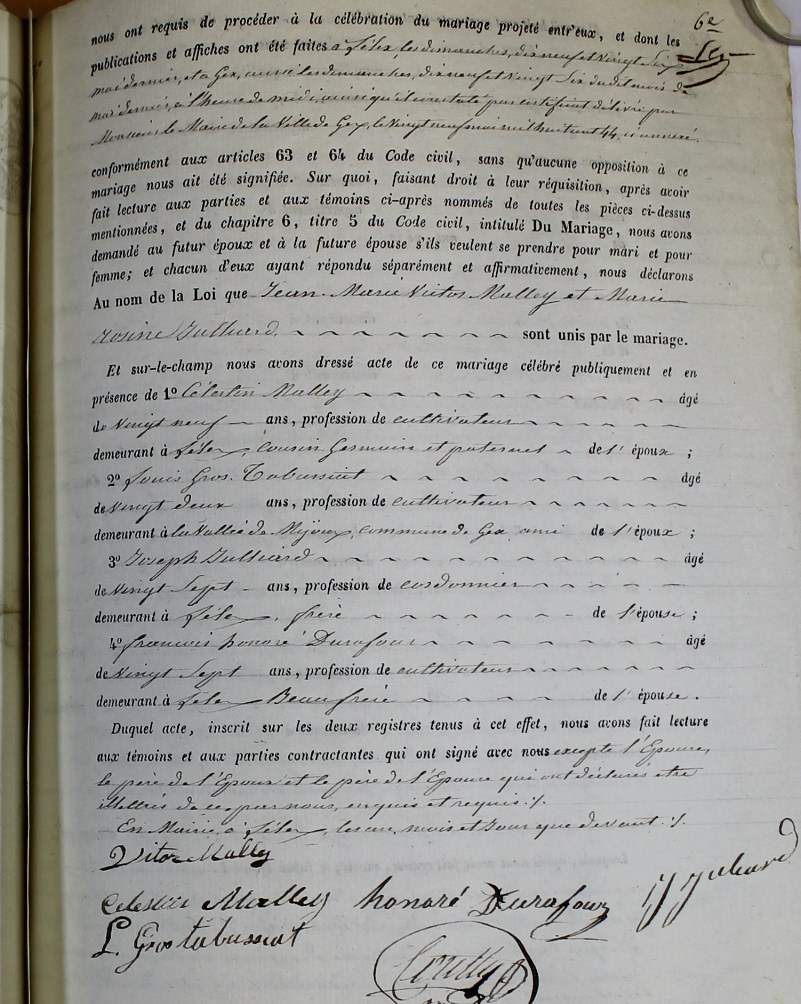 6e
nous ont requis de procéder à la célébration du mariage projeté entr'eux, et dont les
publications et affiches ont été faites à Lélex, les dimanches, dix neuf et vingt six
mai dernier, et à Gex, aussi les dimanches, dix neuf et vingt six du dit mois de
mai dernier, à l'heure de midi, ainsi qu'il constate par certificat délivré par
Monsieur le Maire de la Ville de Gex, le vingt neuf mai mil huit cent 44, ci annexé,
conformément aux articles 63 et 64 du Code civil, sans qu'aucune opposition à ce
mariage nous ait été signifiée. Sur quoi, faisant droit à leur réquisition, après avoir
fait lecture aux parties et aux témoins ci-après nommés de toutes les pièces ci-dessus
mentionnées, et du chapitre 6, titre 5 du Code civil, intitulé Du Mariage, nous avons
demandé au futur époux et à la future épouse s'ils veulent se prendre pour mari et pour
femme; et chacun d'eux ayant répondu séparément et affirmativement, nous déclarons
Au nom de la Loi que Jean-Marie Victor Malley et Marie
rosine Julliard sont unis par le mariage.
Et sur-le-champ nous avons dressé acte de ce mariage célébré publiquement et en
présence de 1o Célestin Malley âgé
de vingt neuf ans, profession de cultivateur
demeurant à Lélex, cousin Germain et paternel de l'époux ;
2o Louis Gros-Tabussiat âgé
de vingt deux ans, profession de cultivateur
demeurant à la Vallée de Mijoux, commune de Gex ami de l'époux ;
3o Joseph Julliard âgé
de vingt Sept ans, profession de cordonnier
demeurant à Lélex, frère de l'épouse ;
4o francois honoré Durafour âgé
de vingt Sept ans, profession de cultivateur
demeurant à Lélex Beaufrère de l'épouse.
Duquel acte, inscrit sur les deux registres tenus à cet effet, nous avons fait lecture
aux témoins et aux parties contractantes qui ont signé avec nous excepté l'Epouse,
le père de l'Epoux et le père de l'Epouse qui ont déclarés être
illettrés de ce, par nous, enquis et requis ./.
En Mairie, à Lélex, les an, mois et Jour que devant ./.
Vitor Malley
Celestin Malley honoré Durafour J Juliard
L. Grostabussiat